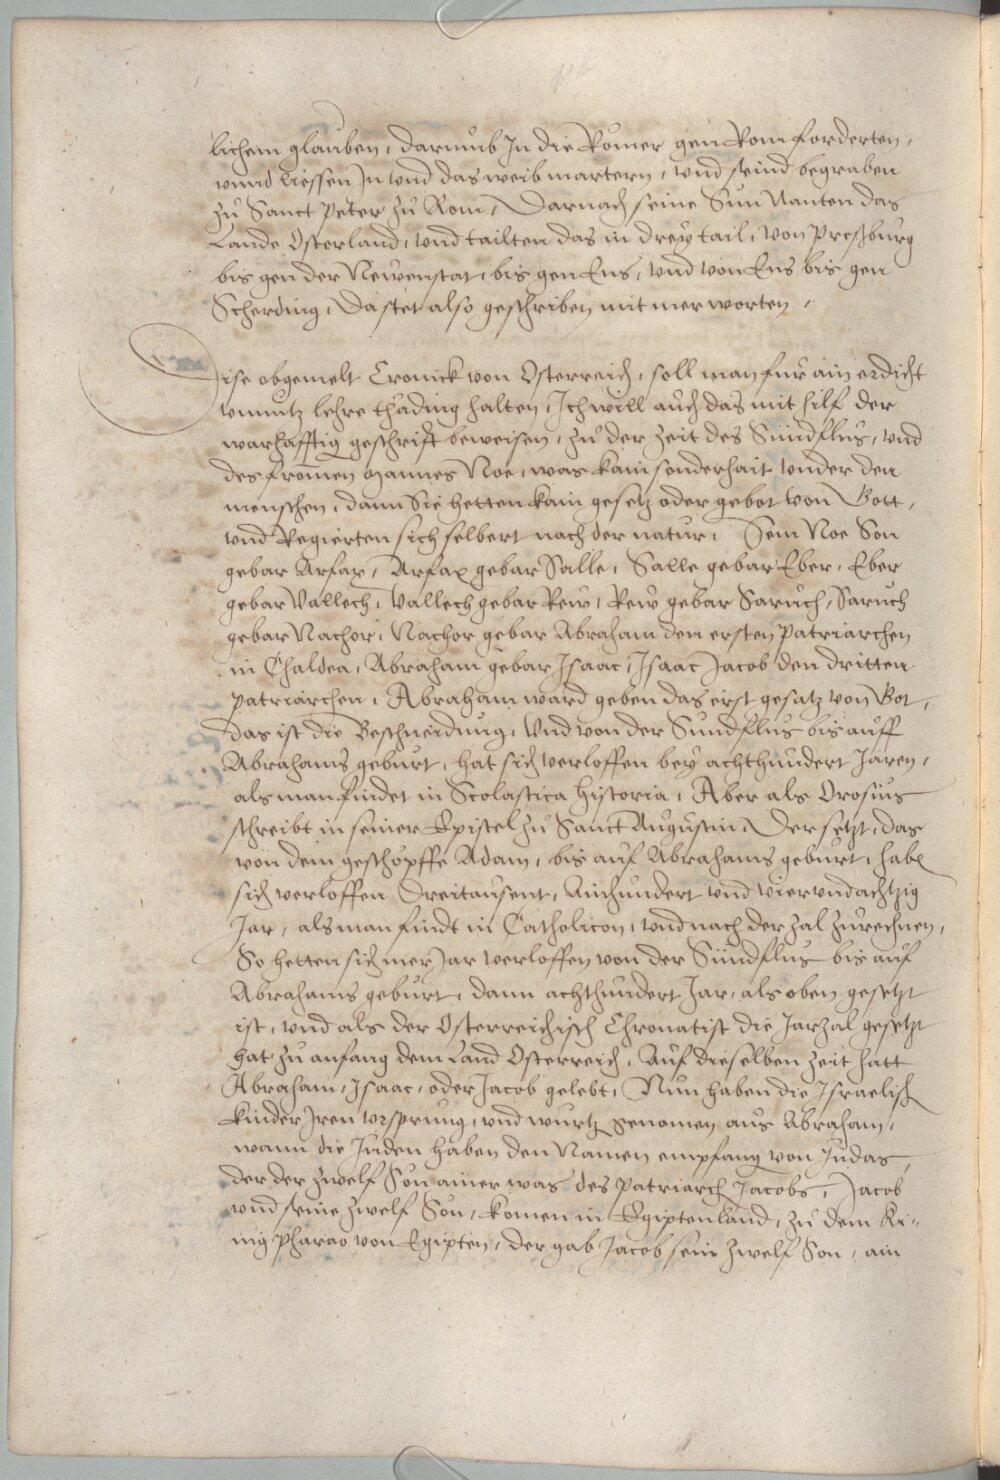 lichem glauben, darumb In die Römer gen Rom forderten,
unnd liessen In und das weib martern, und seind begraben
zu Sanct Peter zu Rom, Darnach seine Sun Nanten das
Lande Osterland, und tailten das in drey tail, von Preßburg
bis gen der Newenstat, bis gen Ens, und von Ens bis gen
Scherding, Da stet also geschriben mit mer worten,
Dise obgemelt Cronick von Osterreich, soll man fur ain erdicht
unnutz lehre thäding halten, Ich will auch das mit hilf der
warhafftig geschrift beweisen, zu der zeit des Sündflus, und
des from̄en mannes Noe, was kain sonderhait under den
menschen, dann Sie hetten kain gesetz oder gebot von Gott,
und Regierten sich selbert nach der natur, Sem Noe Son
gebar Arfax, Arfax gebar Salle, Salle gebar Eber, Eber
gebar Vallech, Vallech gebar Rew, Rew gebar Saruch, Saruch
gebar Nachor, Nachor gebar Abraham den ersten Patriarchen
in Chaldea, Abraham gebar Isaac, Isaac Jacob den dritten
patriarchen, Abraham ward geben das erst gesatz von Got,
das ist die Beschneidung, Und von der Sundflus bis auff
Abrahams geburt, hat sich verloffen bey achthundert Jaren,
als man findet in Scolastica Historia, Aber als Orosius
schreibt in seiner Epistel zu Sanct Augustin, Der setzt, das
von dem geschöpffe Adam, bis auf Abrahams geburt, habe
sich verloffen Dreitausent, Ainhundert und vierundachtzig
Jar, als man findt in Catholicon, und nach der zal zurechnen,
So hetten sich mer Jar verloffen von der Sündflus bis auf
Abrahams geburt, dann achthundert Jar, als oben gesetzt
ist, und als der Osterreichisch Chronatist die Jarzal gesetzt
hat zu anfang dem Land Osterreich, Auf dieselben zeit hatt
Abraham, Isaac, oder Jacob gelebt, Nun haben die Israelisch
kinder Iren ursprung, und wurtz genomen aus Abraham,
wann die Juden haben den Namen empfang von Judas,
der der zwelf Sön ainer was des Patriarch Jacobs, Jacob
und seine zwelf Sön, komen in Egiptenland, zu dem Ki¬
nig Pharao von Egipten, der gab Jacob sein zwelf Son, ain